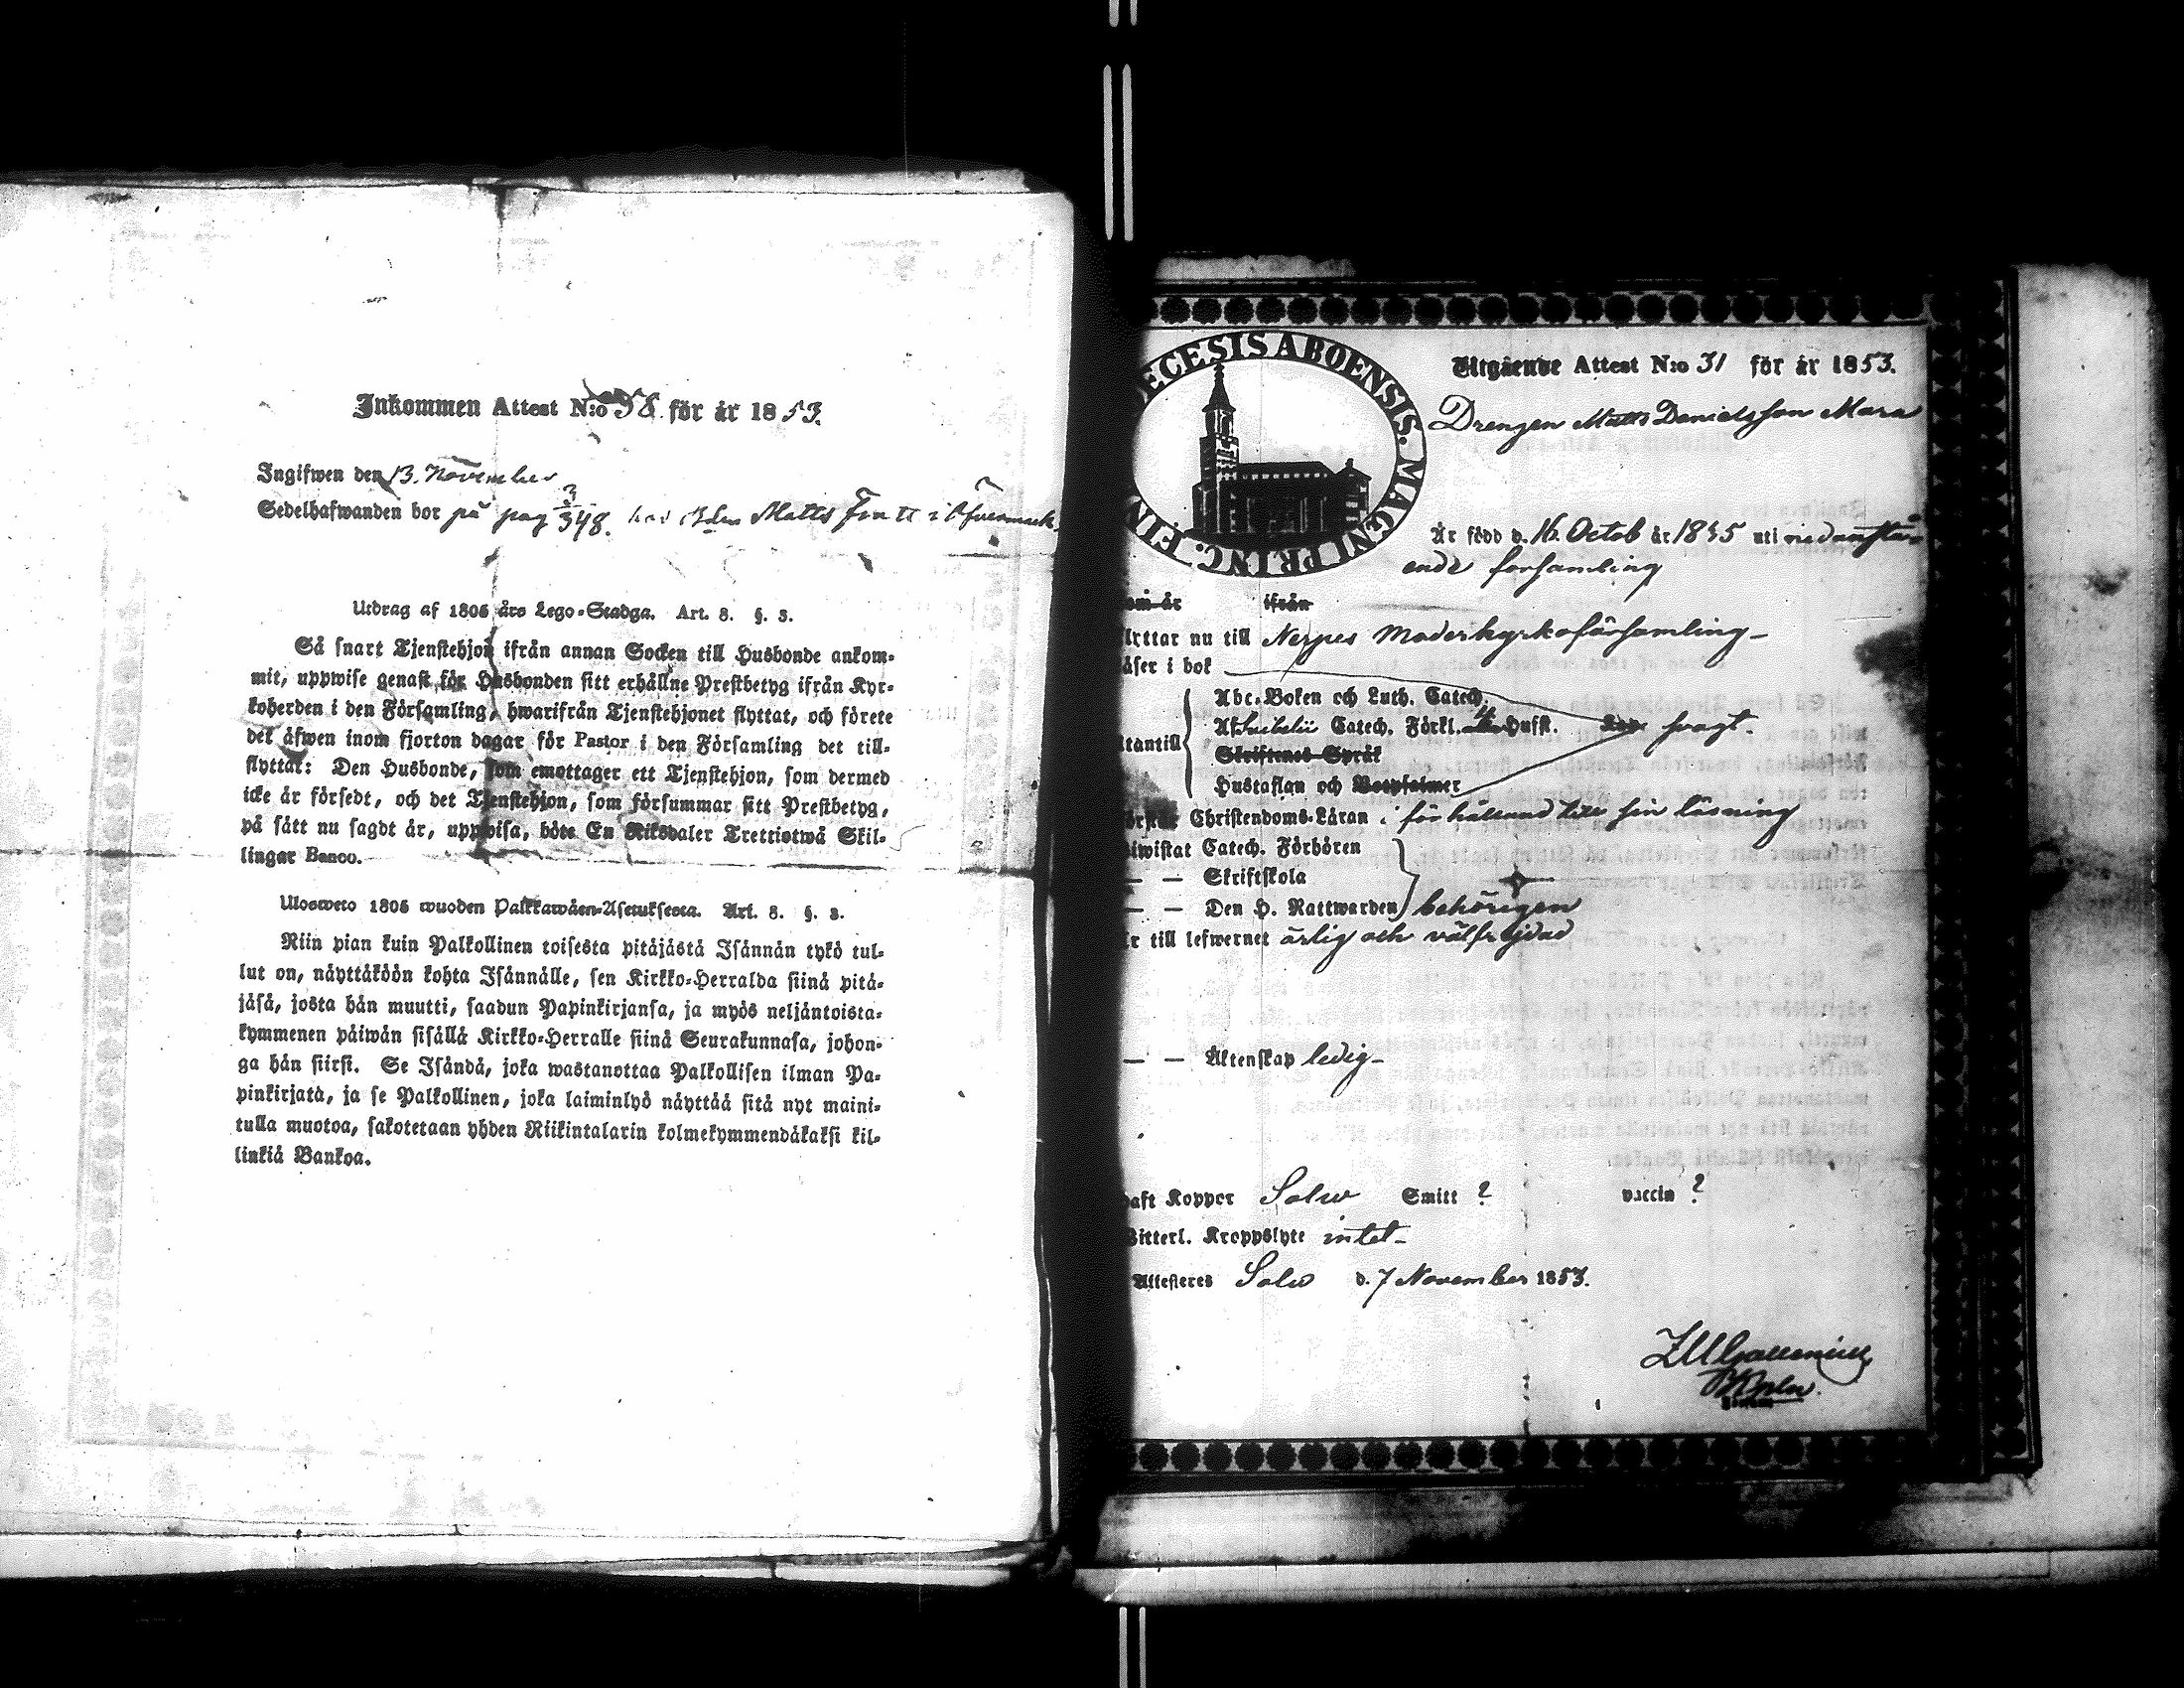 Inkommen Attest N:o 58 för år 1853.
Ingifwen den 13. November
Sedelhafwanden bor på pag 3/348. hos Bden Matts Fratt i Öfvermark
Utdrag af 1805 års Lego-Stadga. Art. 8. §. 3.
Så snart Tjenstehjon ifrån annan Socken till Husbonde ankom-
mit, uppwise genast för Husbonden sitt erhållne Prestbetyg ifrån Kyr-
koherden i den Församling, hwarifrån Tjenstehjonet flyttat, och förete
det äfwen inom fjorton dagar för Pastor i den Församling det till-
flyttar: Den Husbonde, som emottager ett Tjenstehjon, som dermed
icke är försedt, och det Tjenstehjon, som försummar sitt Prestbetyg,
på sätt nu sagdt är, uppwisa, böte En Riksdaler Trettiotwå Skil-
lingar Banco.
Ulosweto 1805 wuoden Palkkawäen-Asetuksesta. Art. 8. §. 3.
Niin pian kuin Palkollinen toisesta pitäjästä Isännän tykö tul-
lut on, näyttäköön kohta Isännälle, sen Kirkko-Herralda siinä pitä-
jäsä, josta hän muutti, saadun Papinkirjansa, ja myös neljäntoista-
kymmenen päiwän sisällä Kirkko-Herralle siinä Seurakunnasa, johon-
ga hän siirst. Se Isändä, joka wastanottaa Palkollisen ilman Pa-
pinkirjatä, ja se Palkollinen, joka laiminlyö näyttää sitä nyt maini-
tulla muotoa, sakotetaan yhden Riikintalarin kolmekymmendäkaksi kil-
linkiä Bankoa.
ECESIS ABOENSIS. MAGNI PRINC. FIN
Utgående Attest N:o 31 för år 1853.
Drengen Matts Danielsson Mara
Är född d. 16 Octob år 1835 uti nedanstå-
ende församling
om år ifrån
lyttar nu till Nerpes Moderkyrkoförsamling
äser i bok
Abc-Boken och Luth. Catech.
Af Svebelii Catech. Förkl. Husst. svagt.
utantill
Skriftenes Språk
Hustaflan och Botpsalmer
örstår Christendoms-Läran i förhållande till sin läsning
iwistat Catech. Förhören
— — Skriftskola
— — Den H. Nattwarden behörigen
r till lefwernet ärlig och välfrejdad
— — Äktenskap ledig
aft Koppor Solw Smitt ? vaccin ?
Witterl. Kroppslyte intet
Attesteres Solw d. 7 November 1853.